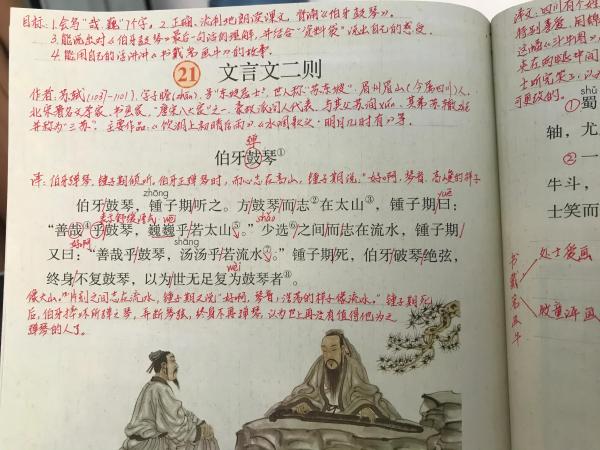 目标:1.会写"哉、巍"7个字。2.正确、流利地朗读课文,背诵《伯牙鼓琴》。
3.能说出对《伯牙鼓琴》最后一句话的理解,并结合"资料袋"说出自己的感受。
4.能用自己的话讲讲《书戴嵩画牛》的故事。
21 文言文二则
作者:苏轼(1037-1101),字子瞻(zhān),号"东坡居士",世人称"苏东坡",眉州眉山(今属四川)人,
北宋著名文学家、书画家,"唐宋八大家"之一,豪放派词人代表,与其父苏洵xún、其弟苏辙
并称为"三苏"。主要作品:《饮湖上初晴后雨》、《水调歌头·明月几时有》等。
弹
伯牙鼓琴①
译:伯牙弹琴,锺子期倾听。伯牙正弹琴时,而心志在高山,锺子期说:"好啊,琴音,高嵬的样子
zhōng yuē
伯牙鼓琴,锺子期听之。方鼓琴而志②在太山③,锺子期曰:
wēi shǎo
"善哉④乎鼓琴,巍巍乎若太山⑤。"少选⑥之间而志在流水,锺子期
好啊 shāng
又曰:"善哉乎鼓琴,汤汤乎若流水⑦。"锺子期死,伯牙破琴绝弦,
wéi
终身不复鼓琴,以为世无足复为鼓琴者⑧。
像大山。"片刻之间志在流水,锺子期又说:"好啊,琴音,浩荡的样子像流水。"锺子期死
后,伯牙摔坏所弹之琴,弄断琴弦,终身不再弹琴,认为世上再没有值得他为之
弹琴的人了。
可更改的。
shǔ
①蜀
轴,尤
②一
牛斗,
士笑而
书戴嵩画牛
处士爱画
牧童评画